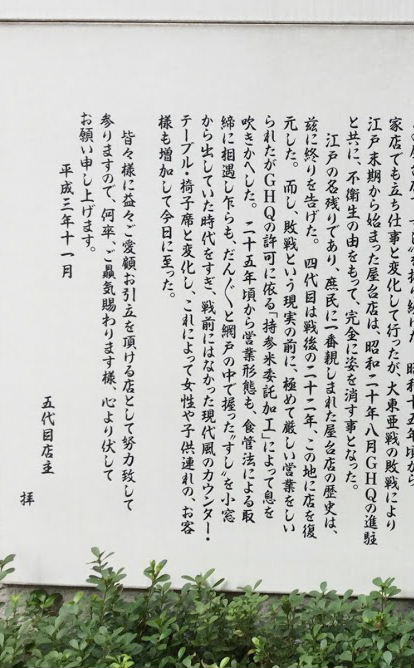 家店でも立ち仕事と変化して行ったが、大東亜戦の敗戦により
江戸末期から始まった屋台店は、昭和二十年八月GHQの進駐
と共に、不衛生の由をもって、完全に姿を消す事となった。
江戸の名残りであり、庶民に一番親しまれた屋台店の歴史は、
茲に終りを告げた。四代目は戦後の二十二年、この地に店を復
元した。而し、敗戦という現実の前に、極めて厳しい営業をしい
られたがGHQの許可に依る「持参米委託加工」によって息を
吹きかへした。二十五年頃から営業形態も、食管法による取
締に相遇し乍らも、だんだんと網戸の中で握った〝すし〟を小窓
から出していた時代をすぎ、戦前にはなかった現代風のカウンター・
テーブル・椅子席と変化し、これによって女性や子供連れの、お客
様も増加して今日に至った。
皆々様に益々ご愛顧お引立を頂ける店として努力致して
参りますので、何卒、ご贔気賜わります様、心より伏して
お願い申し上げます。
平成三年十一月
五代目店主
拝